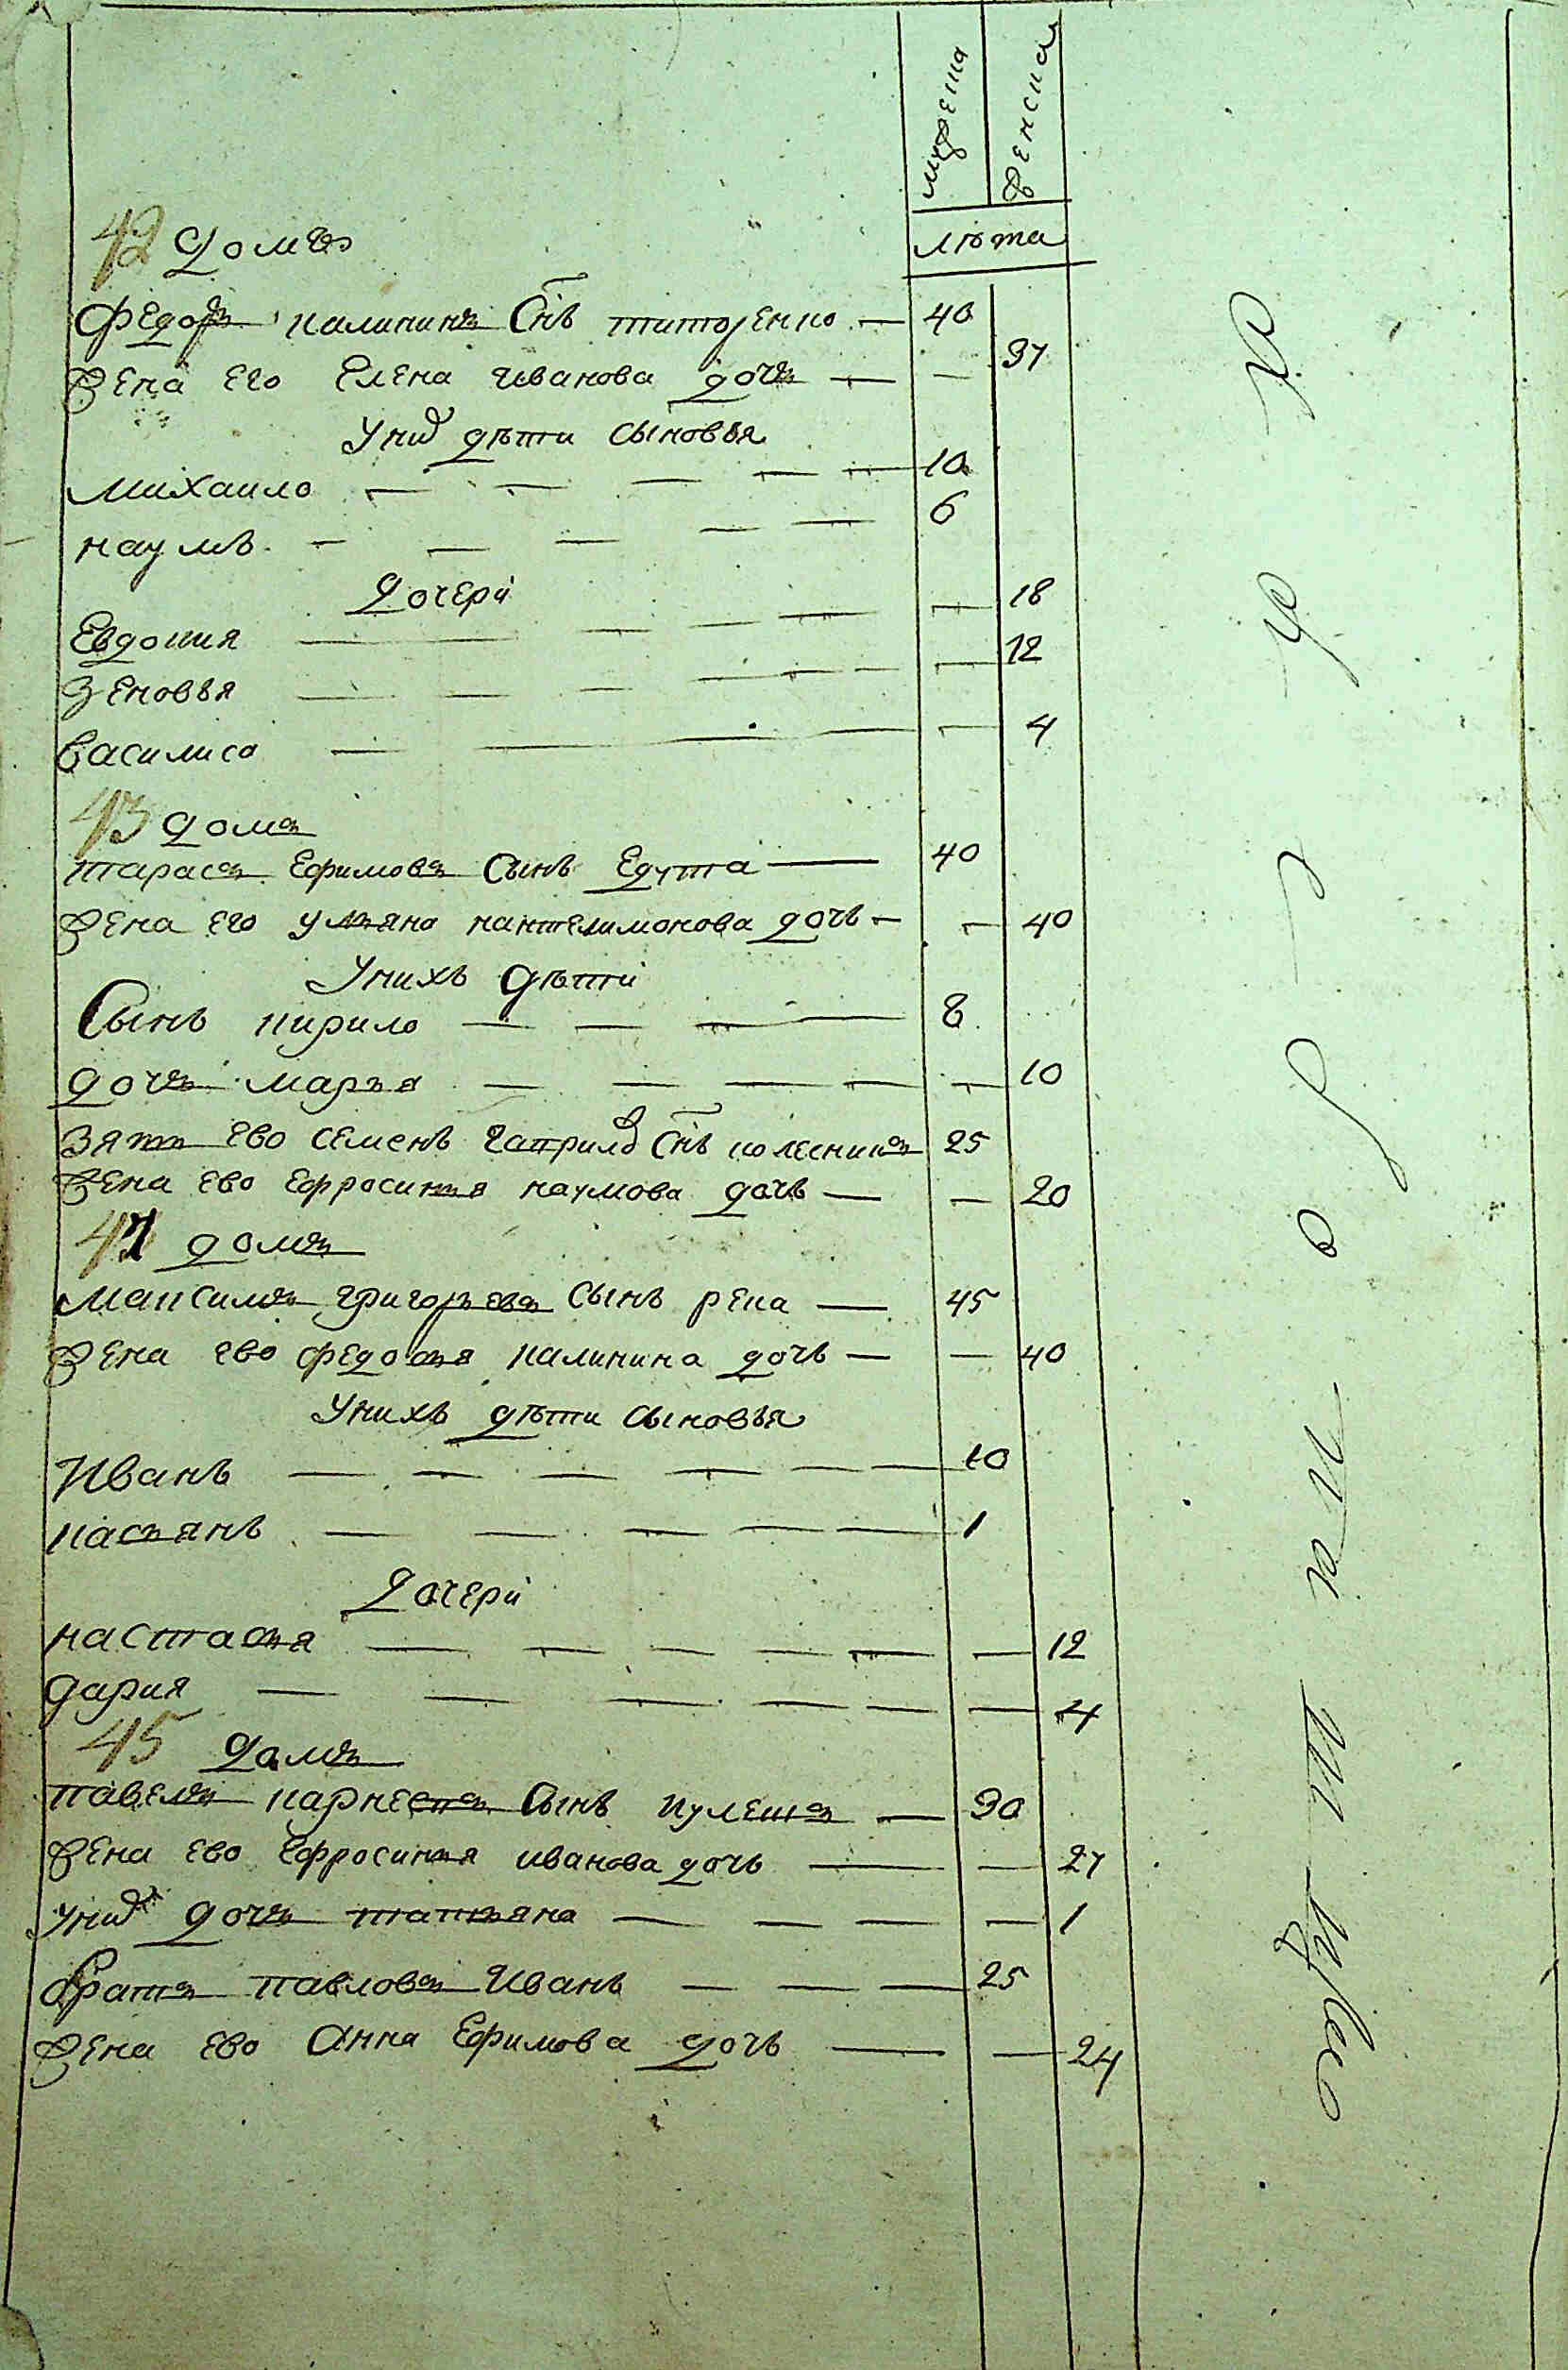 мужеска женска
лѣта
42 домъ
Федоръ калининъ Снъ титоренко — 40
жена его Елена иванова дочь — — 37
У них дѣти сыновья
михаило — 10
наумъ — 6
Дочери
Евдокия — 18
Зеновья — 12
василиса — 4
43 домъ
тарасъ Ефимовъ Сынъ Едута — 40
жена его ульяна пантелимонова дочь — — 40
У нихъ дѣти
Сынъ кирило — 8
дочь марья — 10
зять ево семенъ гаврилов Снъ колесникъ 25
жена ево Ефросинья наумова дочь — — 20
44 домъ
максимъ григорьевъ сынъ репа — 45
жена ево федосья калинина дочь — — 40
У нихъ дѣти сыновья
Иванъ — 10
касьянъ — 1
Дочери
настасья — 12
дария — 4
45 домъ
павелъ карнеевъ Сынъ кулешъ — 30
жена ево Ефросинья иванова дочь — — 27
У них дочь татьяна — 1
братъ павловъ Иванъ — 25
жена ево Анна Ефимова дочь — — 24